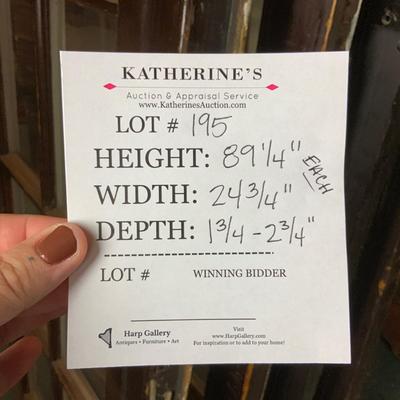 KATHERINE'S
Auction & Appraisal Service
www.KatherinesAuction.com
LOT # 195
HEIGHT: 89 1/4" EACH
WIDTH: 24 3/4"
DEPTH: 1 3/4 - 2 3/4"
LOT # WINNING BIDDER
Harp Gallery
Antiques • Furniture • Art
Visit
www.HarpGallery.com
For inspiration or to add to your home!